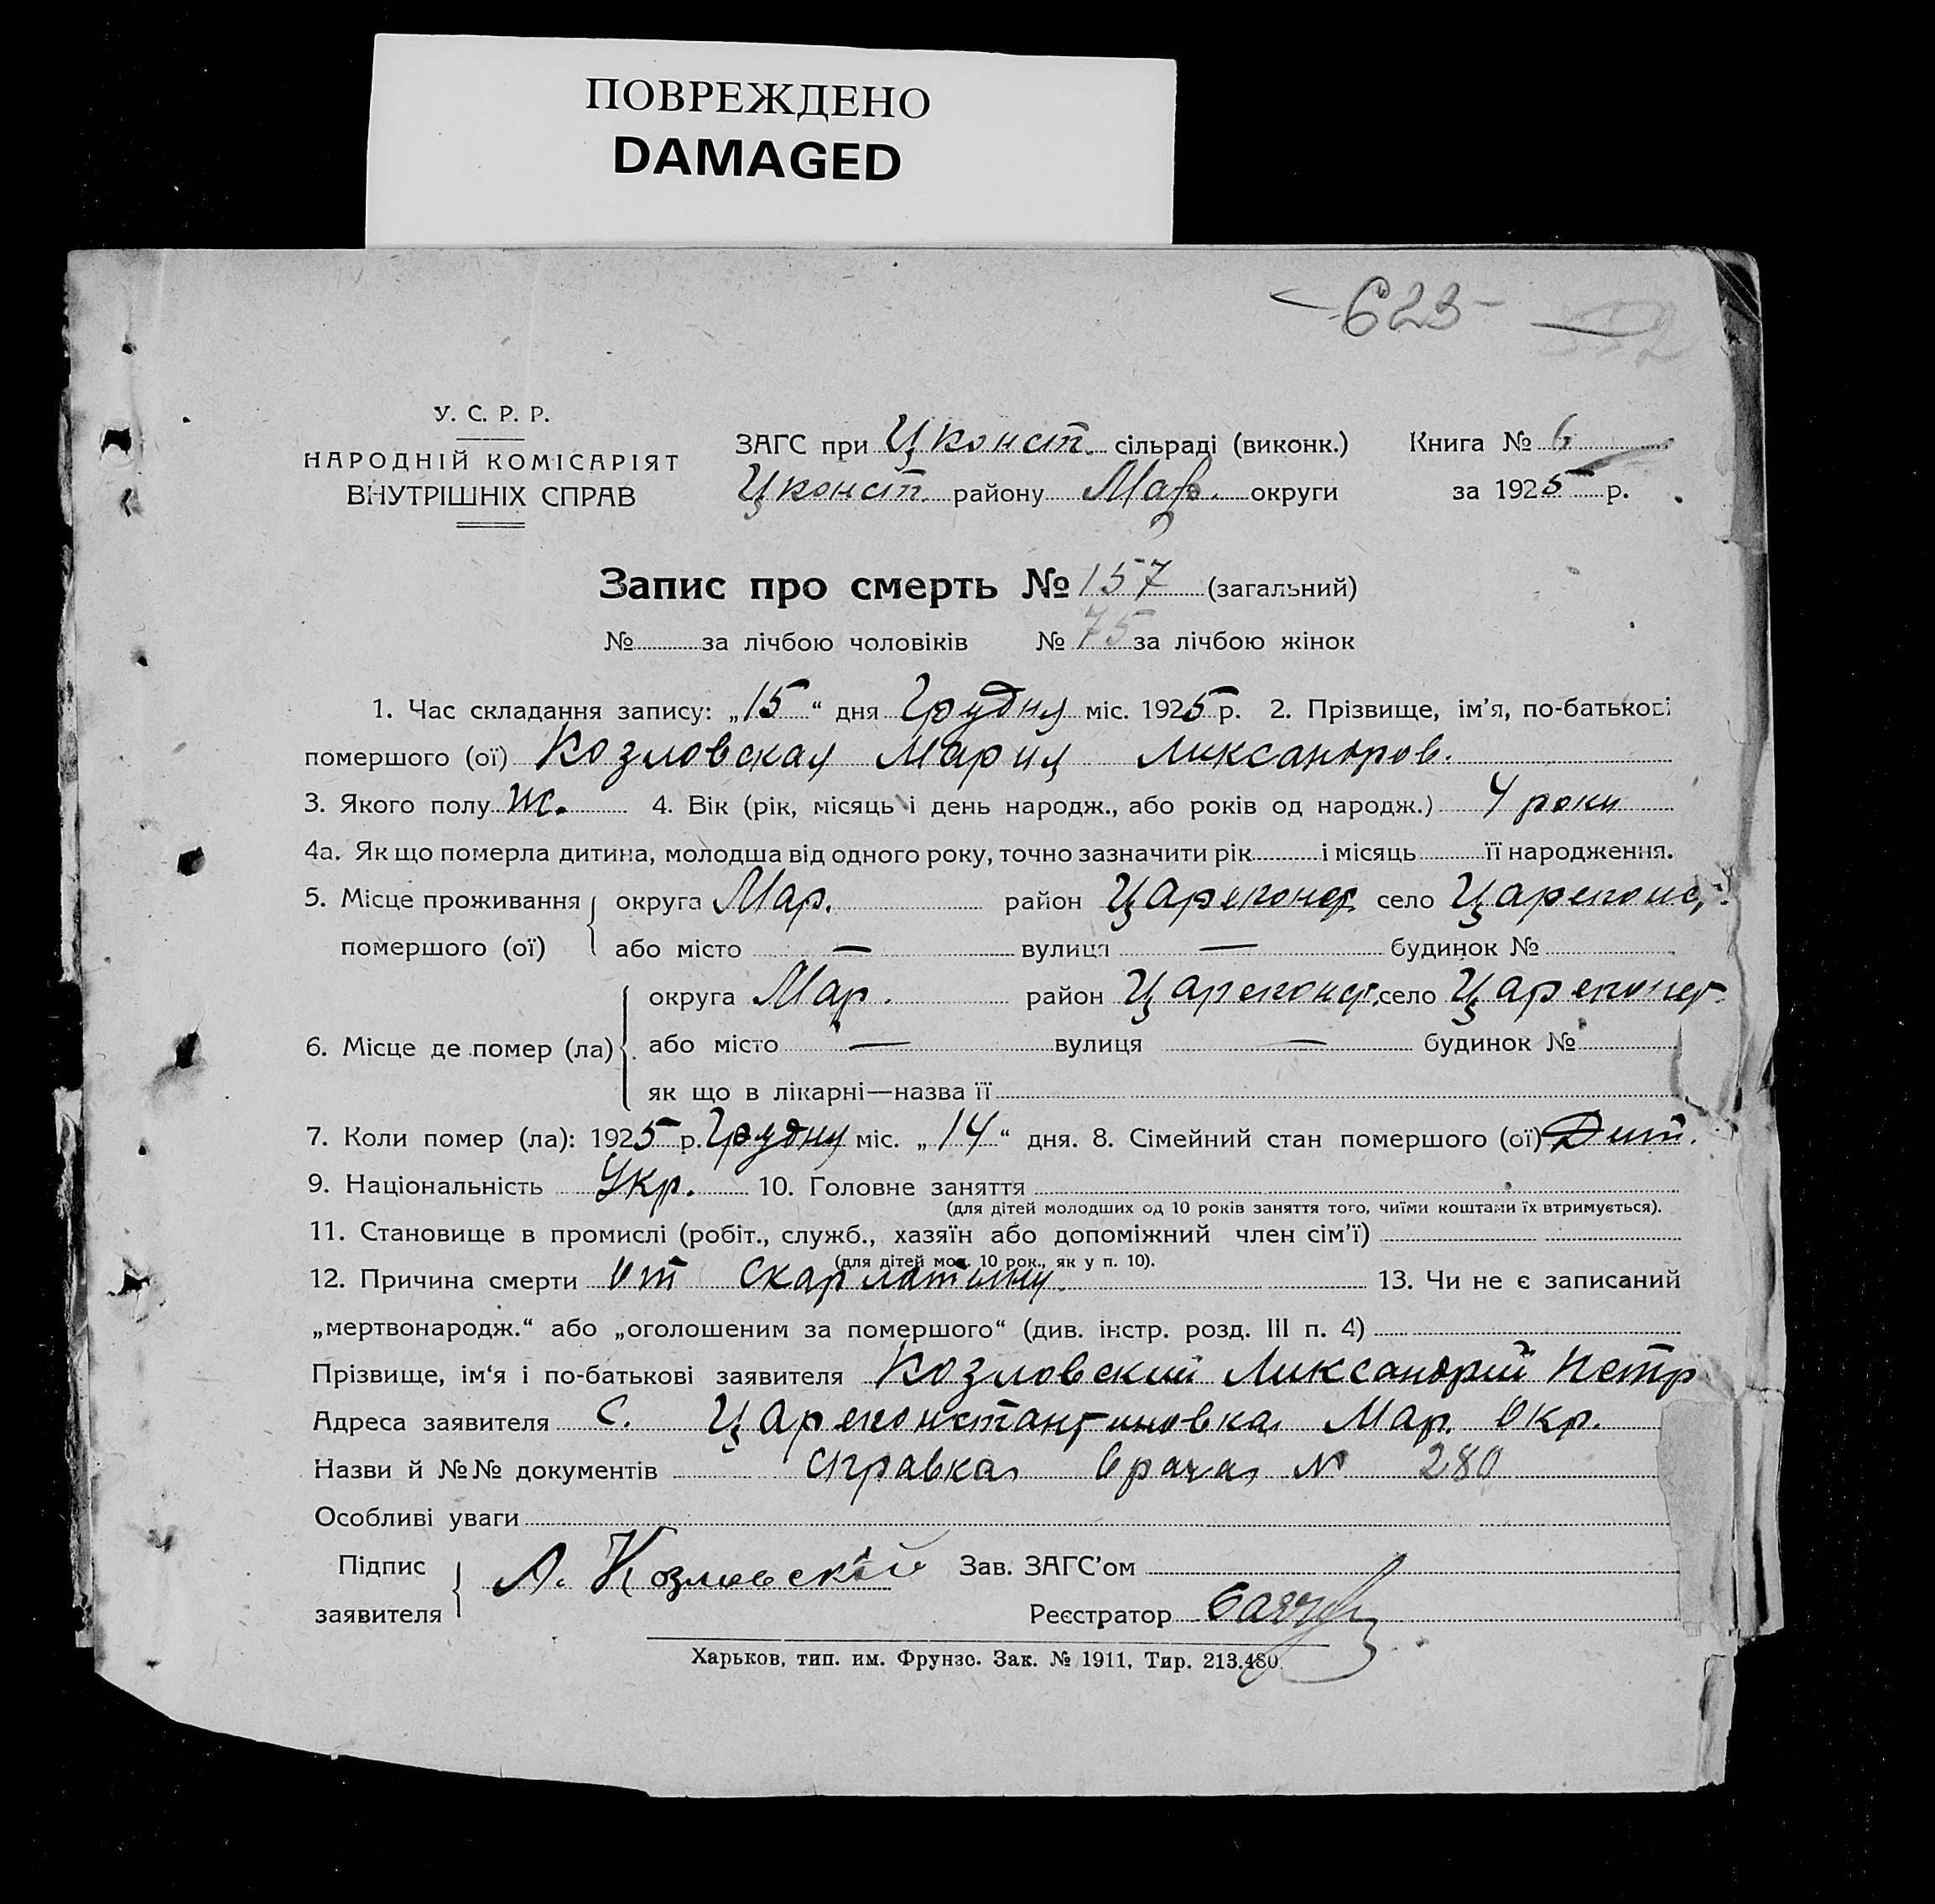 ПОВРЕЖДЕНО
DAMAGED
-623-
552
У. С. Р. Р.
НАРОДНІЙ КОМІСАРІЯТ
ВНУТРІШНІХ СПРАВ
ЗАГС при Цконст. сільраді (виконк.) Книга № 6
Цконст. району Мар. округи за 1925 р.
Запис про смерть № 157 (загальний)
№ за лічбою чоловіків № 75 за лічбою жінок
1. Час складання запису: „15“ дня Грудня міс. 1925 р. 2. Прізвище, ім’я, по-батькові
помершого (ої) Козловская Мария Ликсандров.
3. Якого полу ж. 4. Вік (рік, місяць і день народж., або років од народж.) 4 роки
4а. Як що померла дитина, молодша від одного року, точно зазначити рік і місяць її народження.
5. Місце проживання помершого (ої) округа Мар. район Цареконст. село Цареконс.
або місто — вулиця — будинок №
6. Місце де помер (ла) округа Мар. район Цареконст. село Цареконст.
або місто — вулиця — будинок №
як що в лікарні—назва її
7. Коли помер (ла): 1925 р. Грудня міс. „14“ дня. 8. Сімейний стан помершого (ої) Дит.
9. Національність Укр. 10. Головне заняття
(для дітей молодших од 10 років заняття того, чиїми коштами їх втримується).
11. Становище в промислі (робіт., служб., хазяїн або допоміжний член сім’ї)
(для дітей мол. 10 рок., як у п. 10).
12. Причина смерти От Скарлатины 13. Чи не є записаний
„мертвонародж.“ або „оголошеним за помершого“ (див. інстр. розд. III п. 4)
Прізвище, ім‘я і по-батькові заявителя Козловский Ликсандрий Петр
Адреса заявителя с. Цареконстантиновка Мар. Окр.
Назви й №№ документів справка врача № 280
Особливі уваги
Підпис заявителя А. Козловскій Зав. ЗАГС’ом
Реєстратор
Харьков, тип. им. Фрунзе. Зак. № 1911, Тир. 213.480.